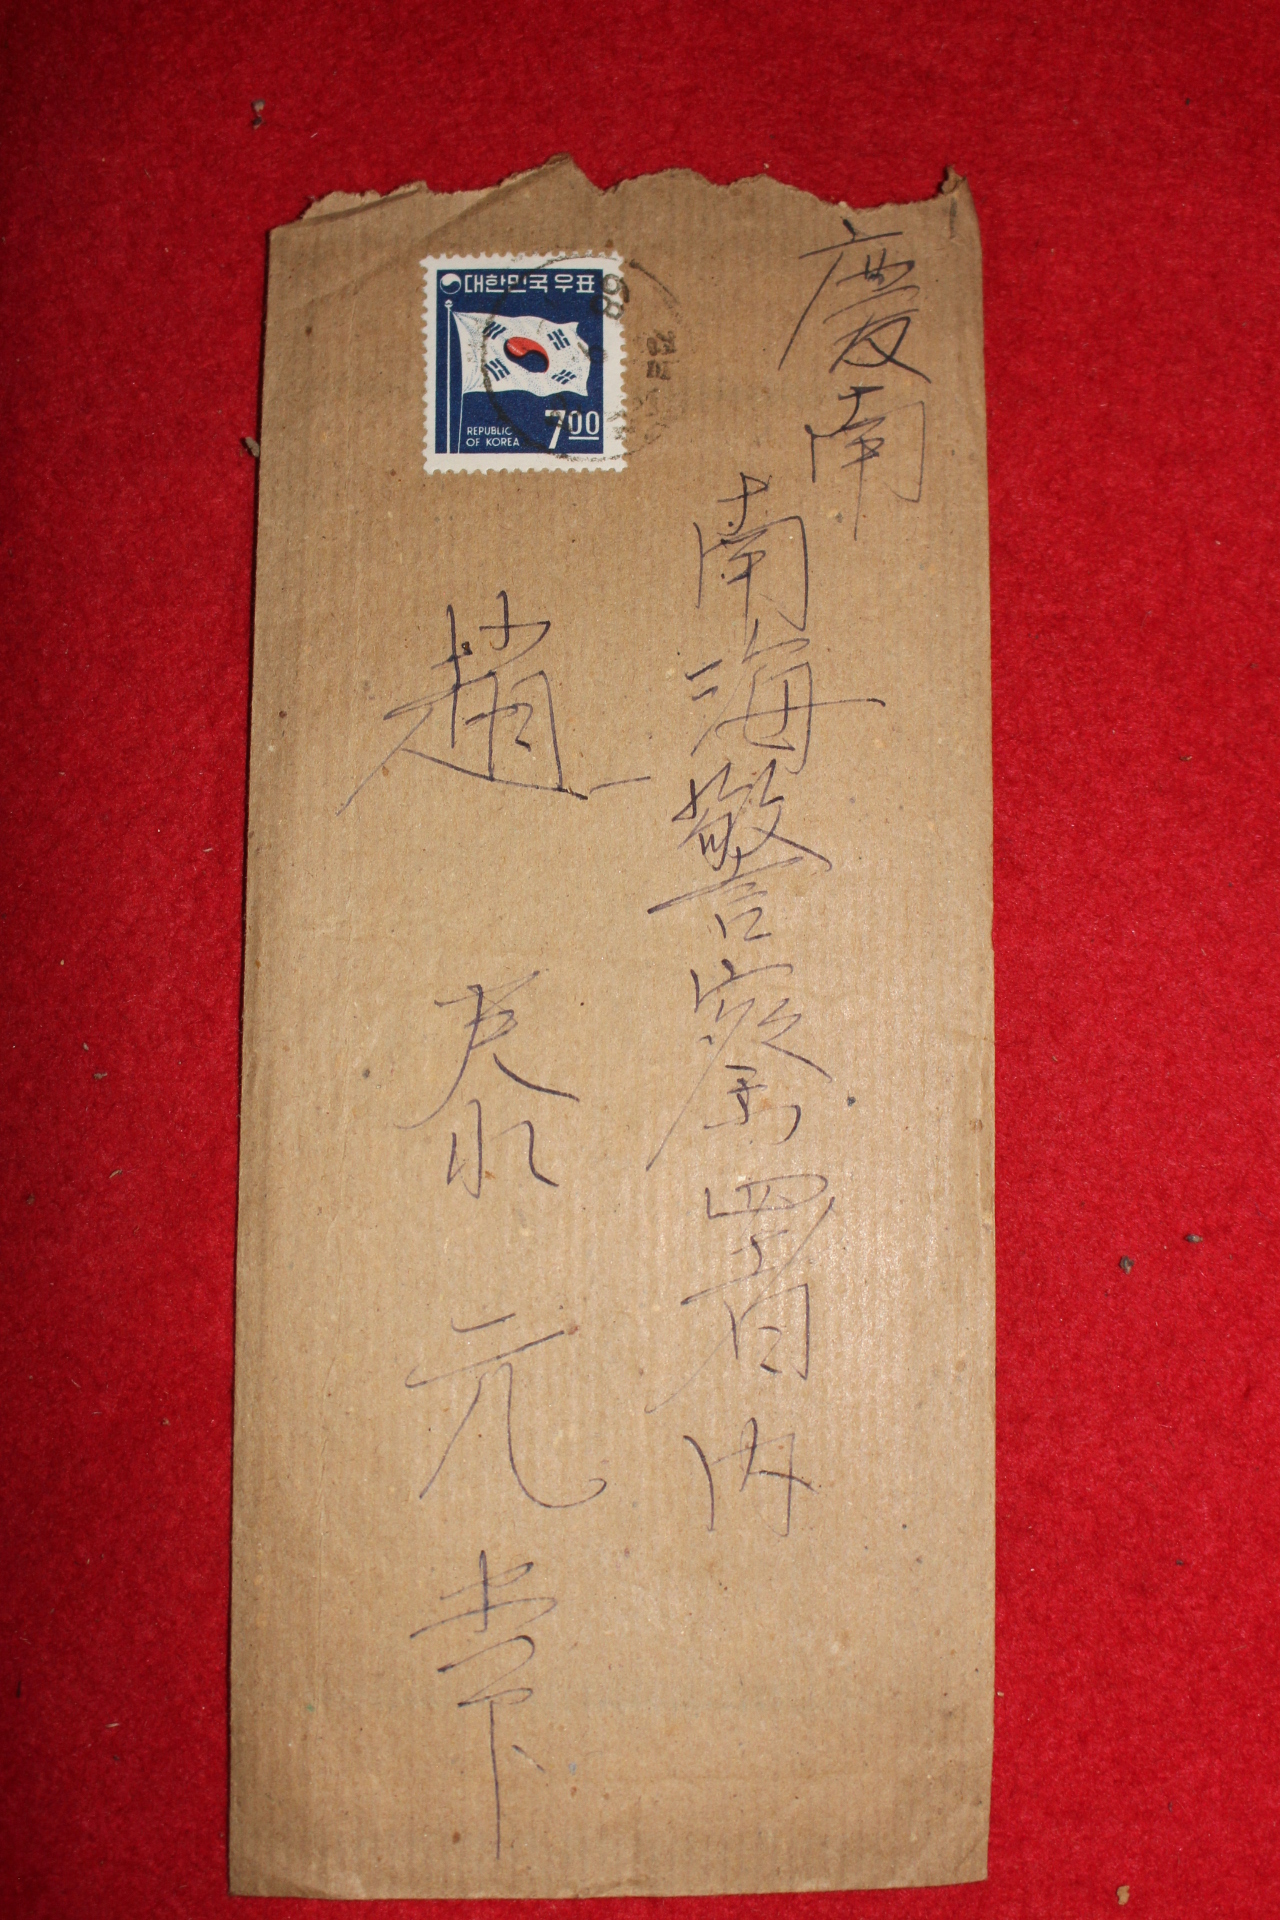 慶南
南海警察署内
趙泰元
대한민국우표
REPUBLIC
OF KOREA
7.00
68